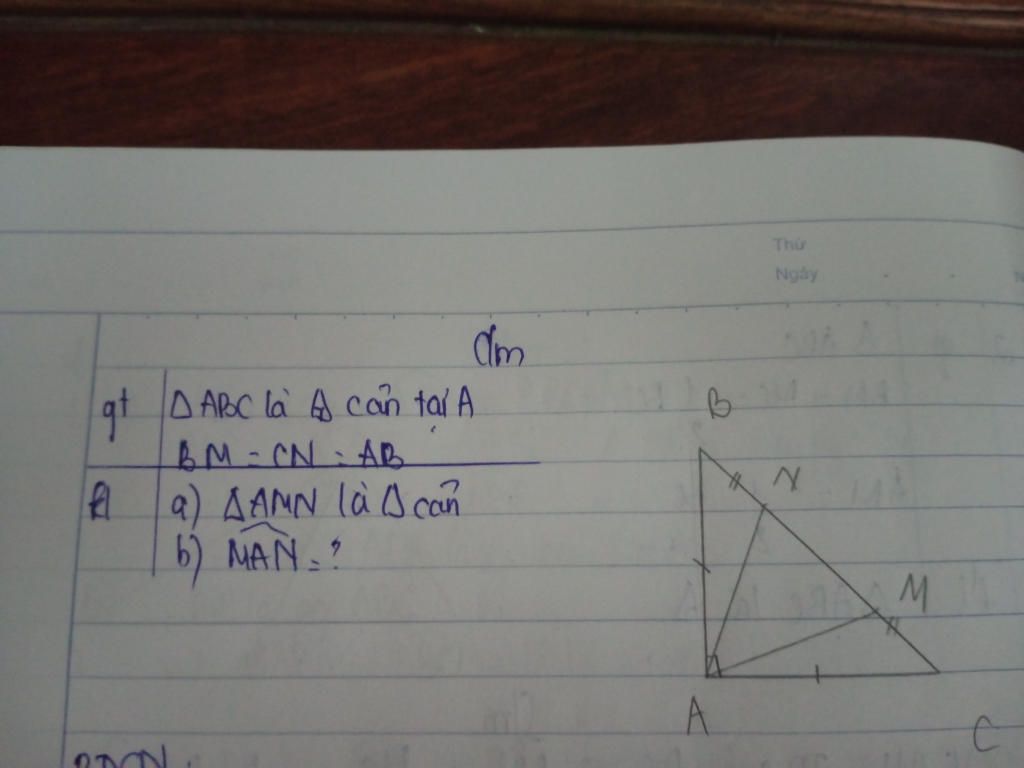 Thứ
Ngày
Cm
gt
∆ ABC là ∆ cân tại A
BM = CN = AB
kl
a) ∆AMN là ∆ cân
b) MAN = ?
B
N
M
A
C